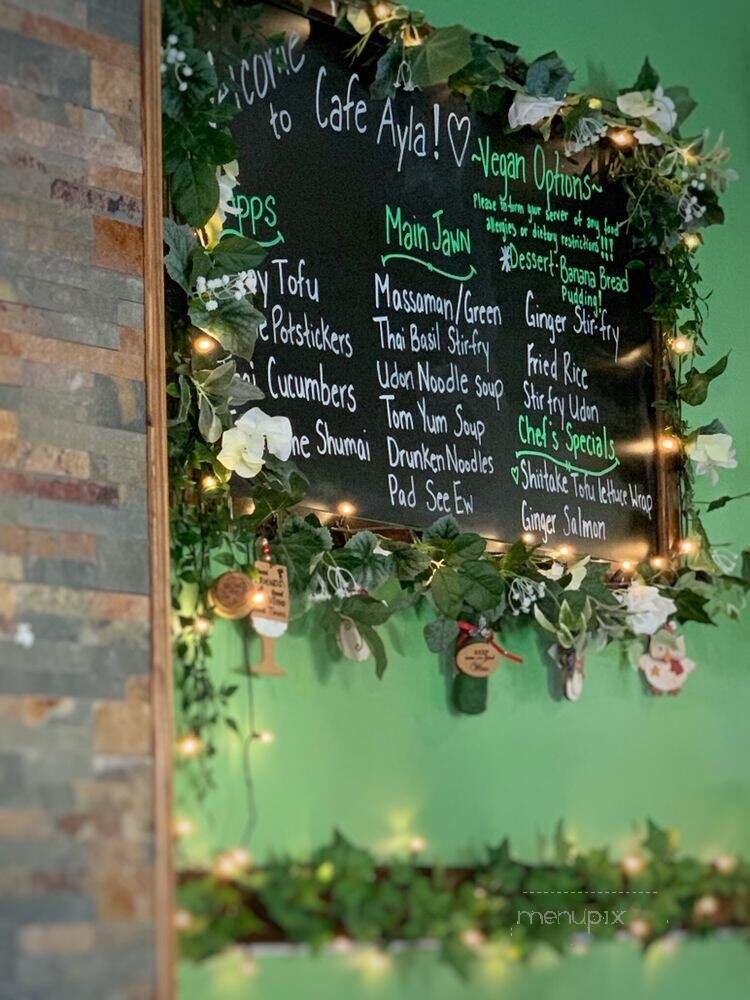 Welcome
to Cafe Ayla! ♡
Apps
y Tofu
e Potstickers
Cucumbers
ne Shumai
Main Jawn
Massaman/Green
Thai Basil Stir-fry
Udon Noodle soup
Tom Yum Soup
Drunken Noodles
Pad See Ew
~Vegan Options~
Please inform your server of any food
allergies or dietary restrictions!!!
*Dessert-Banana Bread
Pudding!
Ginger Stir-fry
Fried Rice
Stir fry Udon
Chef's Specials
♡Shiitake Tofu lettuce Wrap
Ginger Salmon
menupix